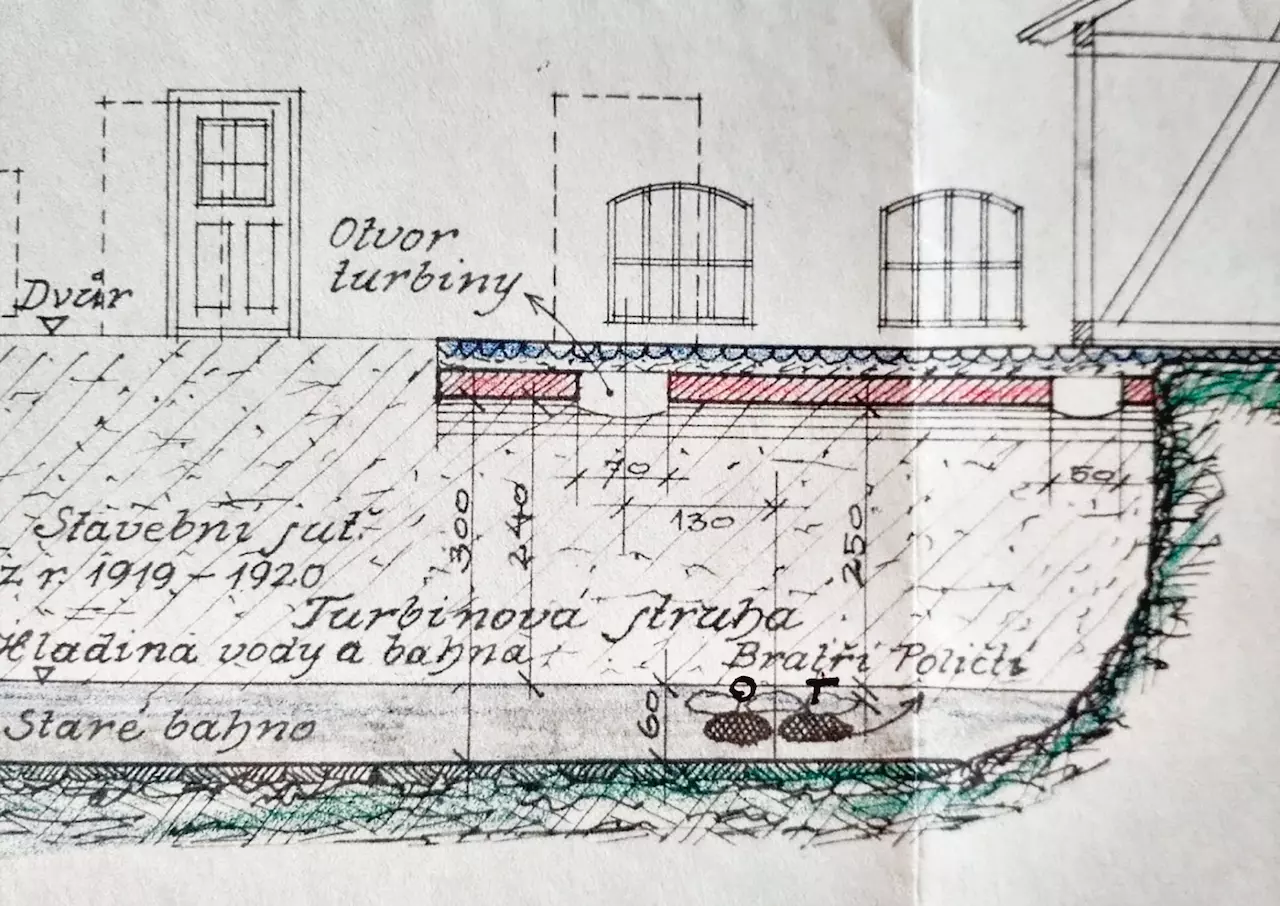 Otvor
turbiny
Dvůr
70
50
130
300
240
250
Stavební suť
z r. 1919 – 1920
Turbinová struha
Hladina vody a bahna
Bratři Poličtí
O T
60
Staré bahno